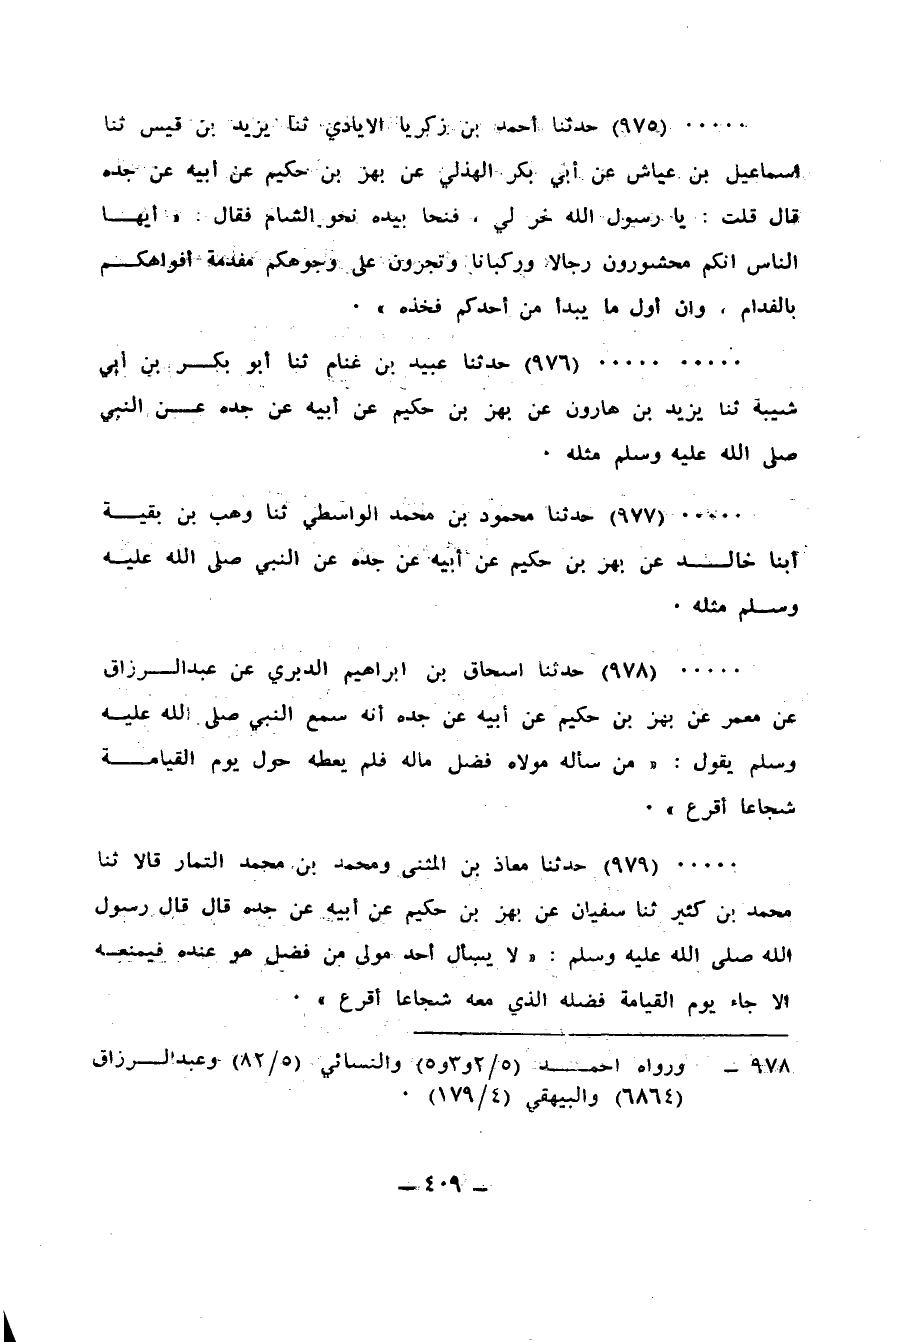 ٠٠٠٠٠ (٩٧٥) حدثنا أحمد بن زكريا الايادي ثنا يزيد بن قيس ثنا
اسماعيل بن عياش عن أبي بكر الهذلي عن بهز بن حكيم عن أبيه عن جده
قال قلت : يا رسول الله خر لي ، فنحا بيده نحو الشام فقال : « أيهـــا
الناس انكم محشورون رجالا وركبانا وتجرون على وجوهكم مفدمة أفواهكـــم
بالفدام ، وان أول ما يبدأ من أحدكم فخذه » ٠
٠٠٠٠٠ ٠٠٠٠٠ (٩٧٦) حدثنا عبيد بن غنام ثنا أبو بكـــر بن أبي
شيبة ثنا يزيد بن هارون عن بهز بن حكيم عن أبيه عن جده عـــن النبي
صلى الله عليه وسلم مثله ٠
٠٠٠٠٠ (٩٧٧) حدثنا محمود بن محمد الواسطي ثنا وهب بن بقيـــة
أبنا خالـــد عن بهز بن حكيم عن أبيه عن جده عن النبي صلى الله عليـــه
وســـلم مثله ٠
٠٠٠٠٠ (٩٧٨) حدثنا اسحاق بن ابراهيم الدبري عن عبدالـــرزاق
عن معمر عن بهز بن حكيم عن أبيه عن جده أنه سمع النبي صلى الله عليـــه
وسلم يقول : « من سأله مولاه فضل ماله فلم يعطه حول يوم القيامـــة
شجاعا أقرع » ٠
٠٠٠٠٠ (٩٧٩) حدثنا معاذ بن المثنى ومحمد بن محمد التمار قالا ثنا
محمد بن كثير ثنا سفيان عن بهز بن حكيم عن أبيه عن جده قال قال رسول
الله صلى الله عليه وسلم : « لا يسأل أحد مولى من فضل هو عنده فيمنعـــه
الا جاء يوم القيامة فضله الذي معه شجاعا أقرع » ٠
٩٧٨ ـ ورواه احمـــد (٥/٢و٣و٥) والنسائي (٥/٨٢) وعبدالـــرزاق
(٦٨٦٤) والبيهقي (٤/١٧٩) ٠
ـ ٤٠٩ ـ